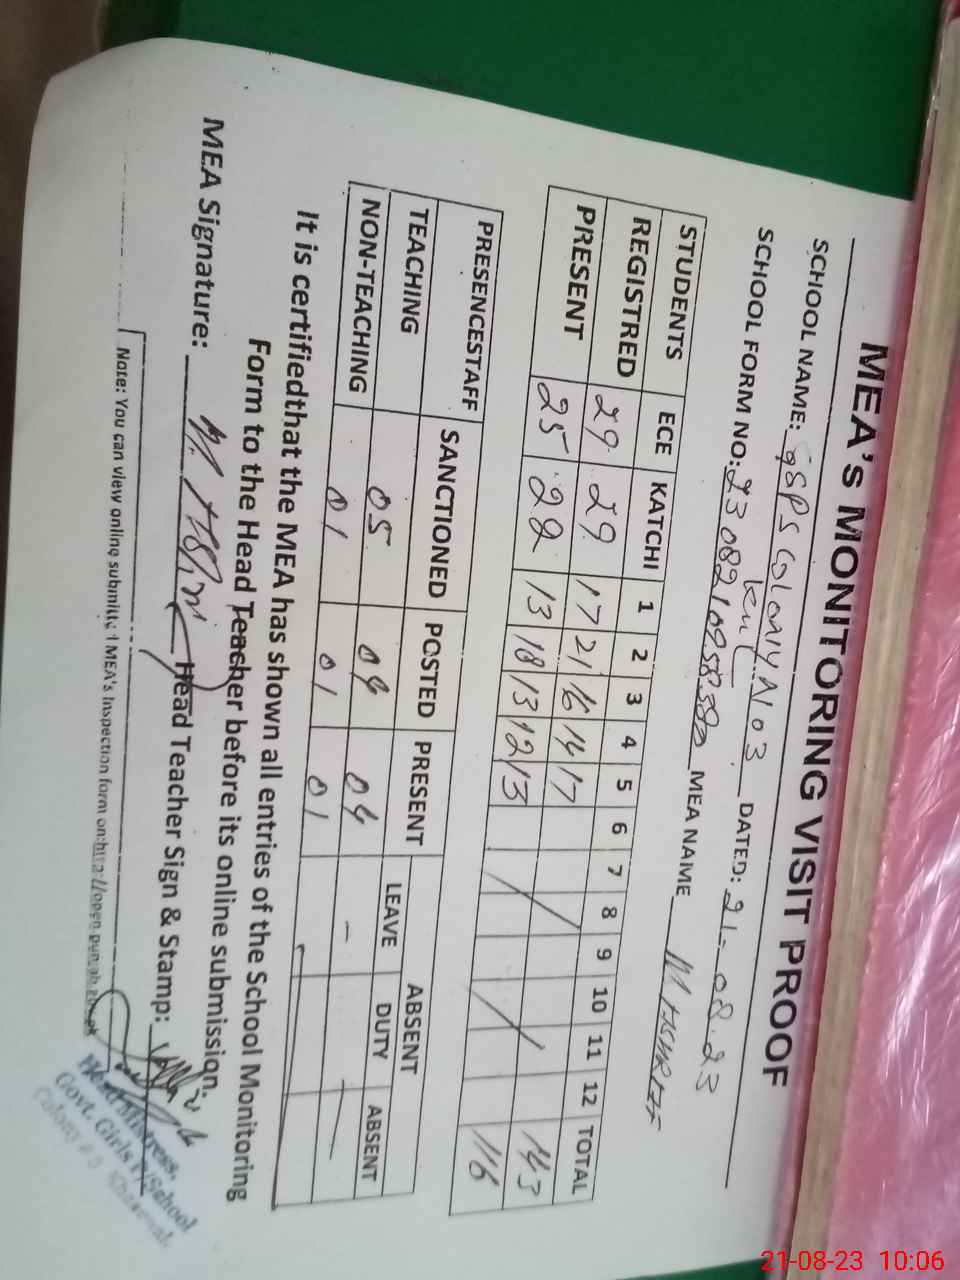 MEA's MONITORING VISIT PROOF
SCHOOL NAME: GGPS Colony No 3 DATED: 21-08-23
SCHOOL FORM NO: MEA NAME
STUDENTS ECE KATCHI 1 2 3 4 5 6 7 8 9 10 11 12 TOTAL
REGISTRED 29 29 17 21 16 14 17 143
PRESENT 25 22 13 18 13 12 13 116
PRESENCESTAFF SANCTIONED POSTED PRESENT ABSENT
LEAVE DUTY ABSENT
TEACHING 05 04 04 -
NON-TEACHING 01 01 01
It is certifiedthat the MEA has shown all entries of the School Monitoring
Form to the Head Teacher before its online submission.
MEA Signature: Head Teacher Sign & Stamp:
Note: You can view online submitted MEA's Inspection form on:http://open.punjab.gov.pk
Headmistress,
Govt. Girls P/School
Colony # 3 Khanewal.
21-08-23 10:06